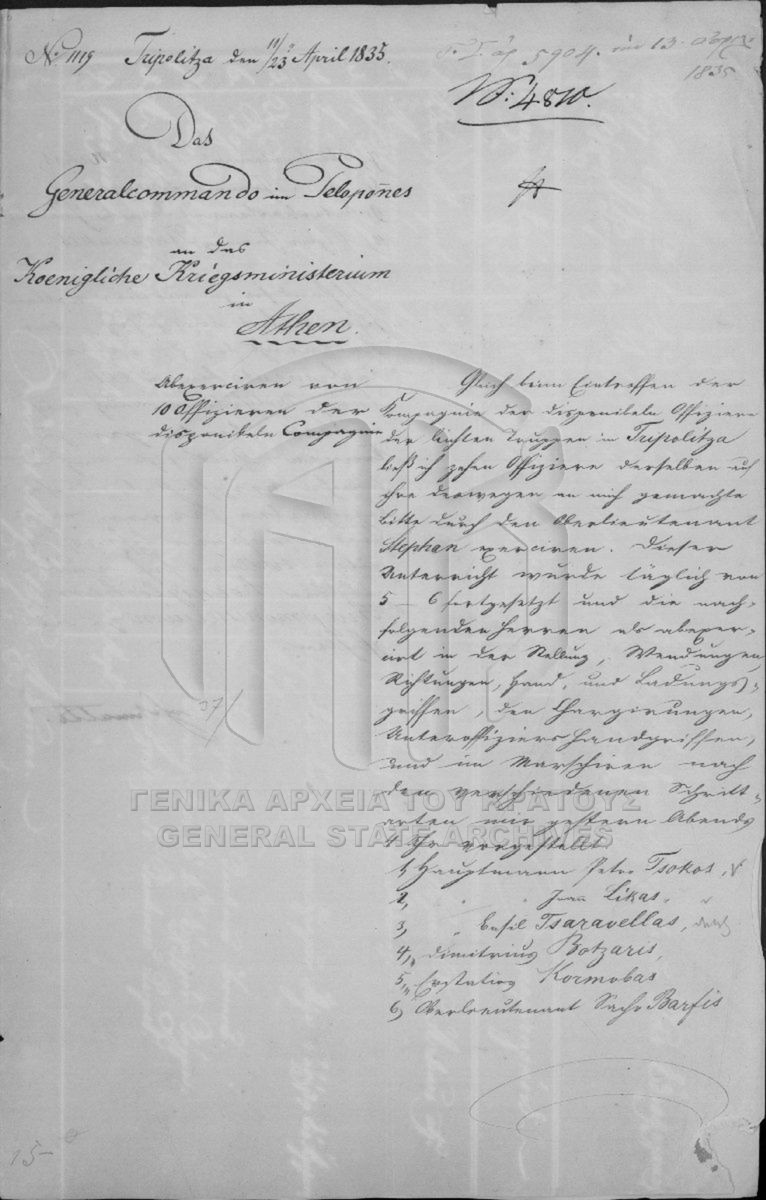 No. 1119 Tripolitza den 11/23 April 1835.
5904. 13
1835
No: 4810.
Das
Generalcommando im Pelopoñes
an das
Koenigliche Kriegsministerium
in
Athen.
Abexerciren von
10 Offizieren der
disponibeln Compagnie
Gleich beim Eintreffen der
Kompagnie der disponibeln Offiziere
der leichten Truppen in Tripolitza
ließ ich zehen Offiziere derselben auf
ihre deswegen an mich gemachte
Bitte durch den Oberlieutenant
Stephan exerciren. Dieser
Unterricht wurde täglich von
5 – 6 fortgesetzt und die nach-
folgenden Herren als abexer-
cirt in der Stellung, Wendungen,
Richtungen, Hand, und Ladungs-
griffen, den Chargirungen,
Unteroffiziers Handgriffen,
und im Marschiren nach
den verschiedenen Schritt-
arten mir gestern Abends
4 Uhr vorgestellt
1, Hauptmann Petro Tsokos,
2, " " Joan Likas,
3, " Basil Tsaravellas,
4, " Dimitrius Botzaris,
5, " Kormobas
6, Oberlieutenant Barfis
37/
15-
ΓΕΝΙΚΑ ΑΡΧΕΙΑ ΤΟΥ ΚΡΑΤΟΥΣ
GENERAL STATE ARCHIVES